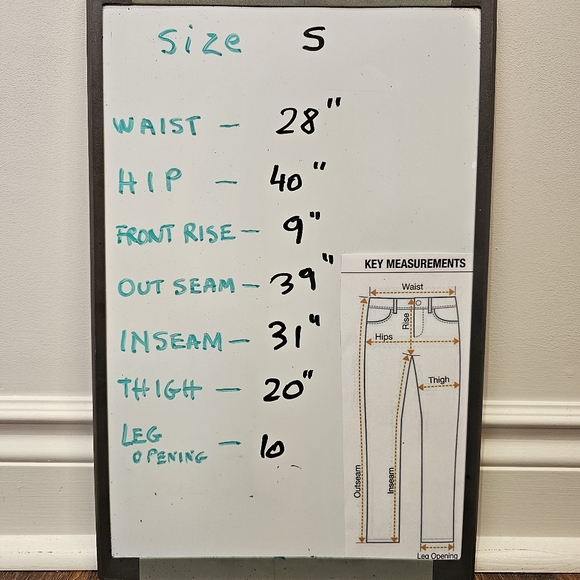 Size S
WAIST – 28"
HIP – 40"
FRONT RISE – 9"
OUT SEAM – 39"
INSEAM – 31"
THIGH – 20"
LEG OPENING – 10
KEY MEASUREMENTS
Waist
Rise
Hips
Thigh
Outseam
Inseam
Leg Opening